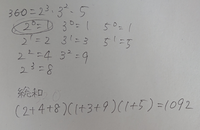 360=2³・3²・5
2⁰=1 3⁰=1 5⁰=1
2¹=2 3¹=3 5¹=5
2²=4 3²=9
2³=8
総和:
(2+4+8)(1+3+9)(1+5)=1092